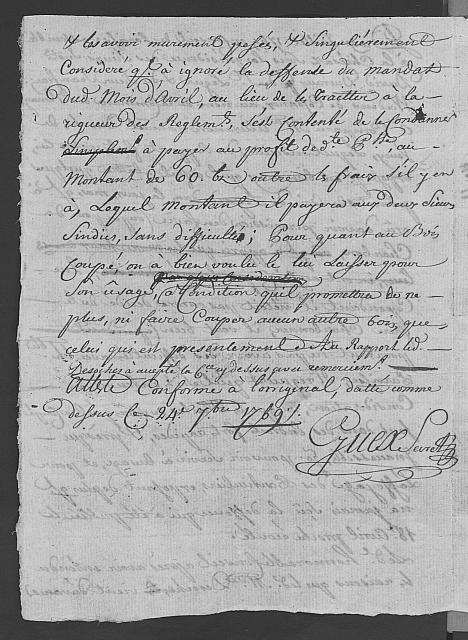 & les avoir murement pesés, & Singuliérement
Considéré q'il à ignoré la deffense du mandat
dud. Mois d'Avril, au lieu de le Traitter à la
rigueur des Reglem.ts, s'est Contenté de le Condanner
à payer au profit de d.te au
Montant de 60. outre les frais s'il y en
à, Lequel montant il payera aux deux Sieurs
Sindics, sans difficulté; Pour quant au Bois
Coupé, on à bien voulu le lui Laisser pour
Son Usage, à Condition qu'il promettra de ne
plus, ni faire Couper aucun autre bois, que
celui qui est presentement Au Rapport led.
Desoches à accepté la cy dessus avec remerciem.t
Atteste Conforme à l'original, datté comme
dessus Ce 24.e 7bre 1769.
Guex Secret.